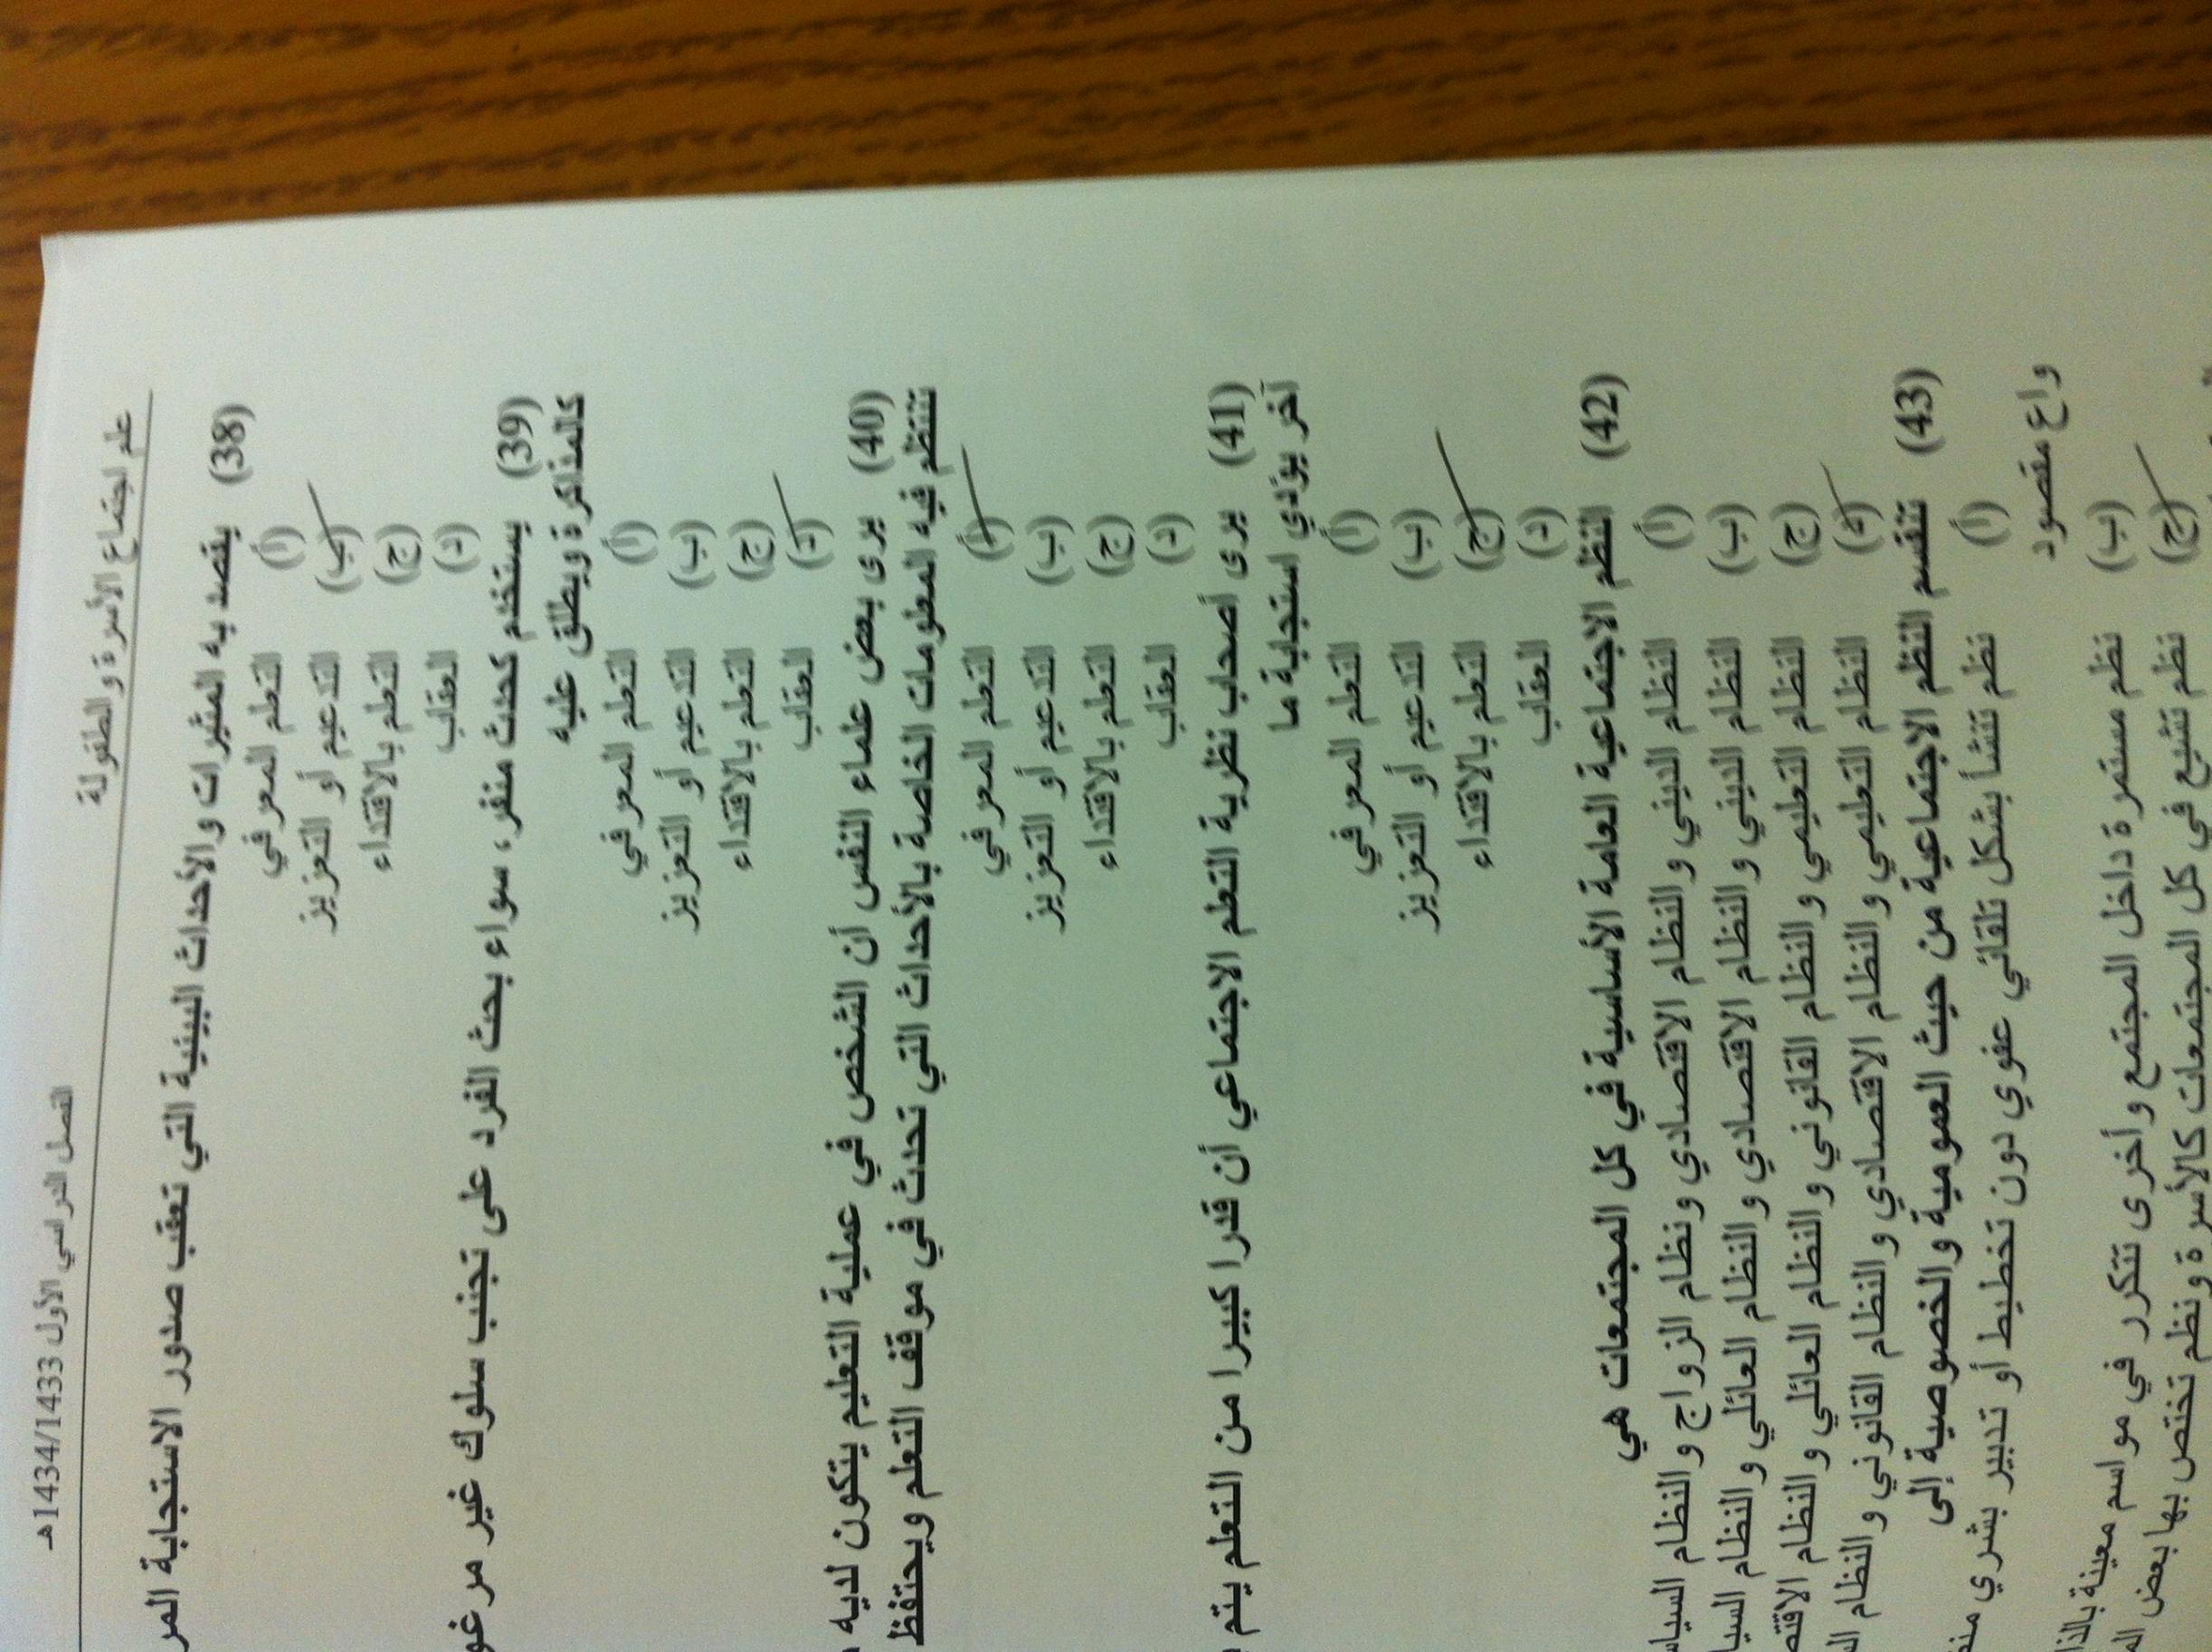 علم اجتماع الأسرة والطفولة
الفصل الدراسي الأول 1434/1433هـ
(38) يقصد به المثيرات والأحداث البيئية التي تعقب صدور الاستجابة
(أ) التعلم المعرفي
(ب) التدعيم أو التعزيز
(ج) التعلم بالاقتداء
(د) العقاب
(39) يستخدم كحدث منفر، سواء بحث الفرد على تجنب سلوك غير
كالمذاكرة ويطلق عليه
(أ) التعلم المعرفي
(ب) التدعيم أو التعزيز
(ج) التعلم بالاقتداء
(د) العقاب
(40) يرى بعض علماء النفس أن الشخص في عملية التعليم يتكون لديه
تنتظم فيه المعلومات الخاصة بالأحداث التي تحدث في موقف التعلم ويحتفظ
(أ) التعلم المعرفي
(ب) التدعيم أو التعزيز
(ج) التعلم بالاقتداء
(د) العقاب
(41) يرى أصحاب نظرية التعلم الاجتماعي أن قدرا كبيرا من التعلم يتم
آخر يؤدي استجابة ما
(أ) التعلم المعرفي
(ب) التدعيم أو التعزيز
(ج) التعلم بالاقتداء
(د) العقاب
(42) النظم الاجتماعية العامة الأساسية في كل المجتمعات هي
(أ) النظام الديني والنظام الاقتصادي ونظام الزواج والنظام
(ب) النظام الديني والنظام الاقتصادي والنظام العائلي والنظام
(ج) النظام التعليمي والنظام القانوني والنظام العائلي والنظام
(د) النظام التعليمي والنظام الاقتصادي والنظام القانوني والنظام
(43) تنقسم النظم الاجتماعية من حيث العمومية والخصوصية إلى
(أ) نظم تنشأ بشكل تلقائي عفوي دون تخطيط أو تدبير بشري
واع مقصود
(ب) نظم مستمرة داخل المجتمع وأخرى تتكرر في مواسم معينة
(ج) نظم تشيع في كل المجتمعات كالأسرة ونظم تختص بها بعض